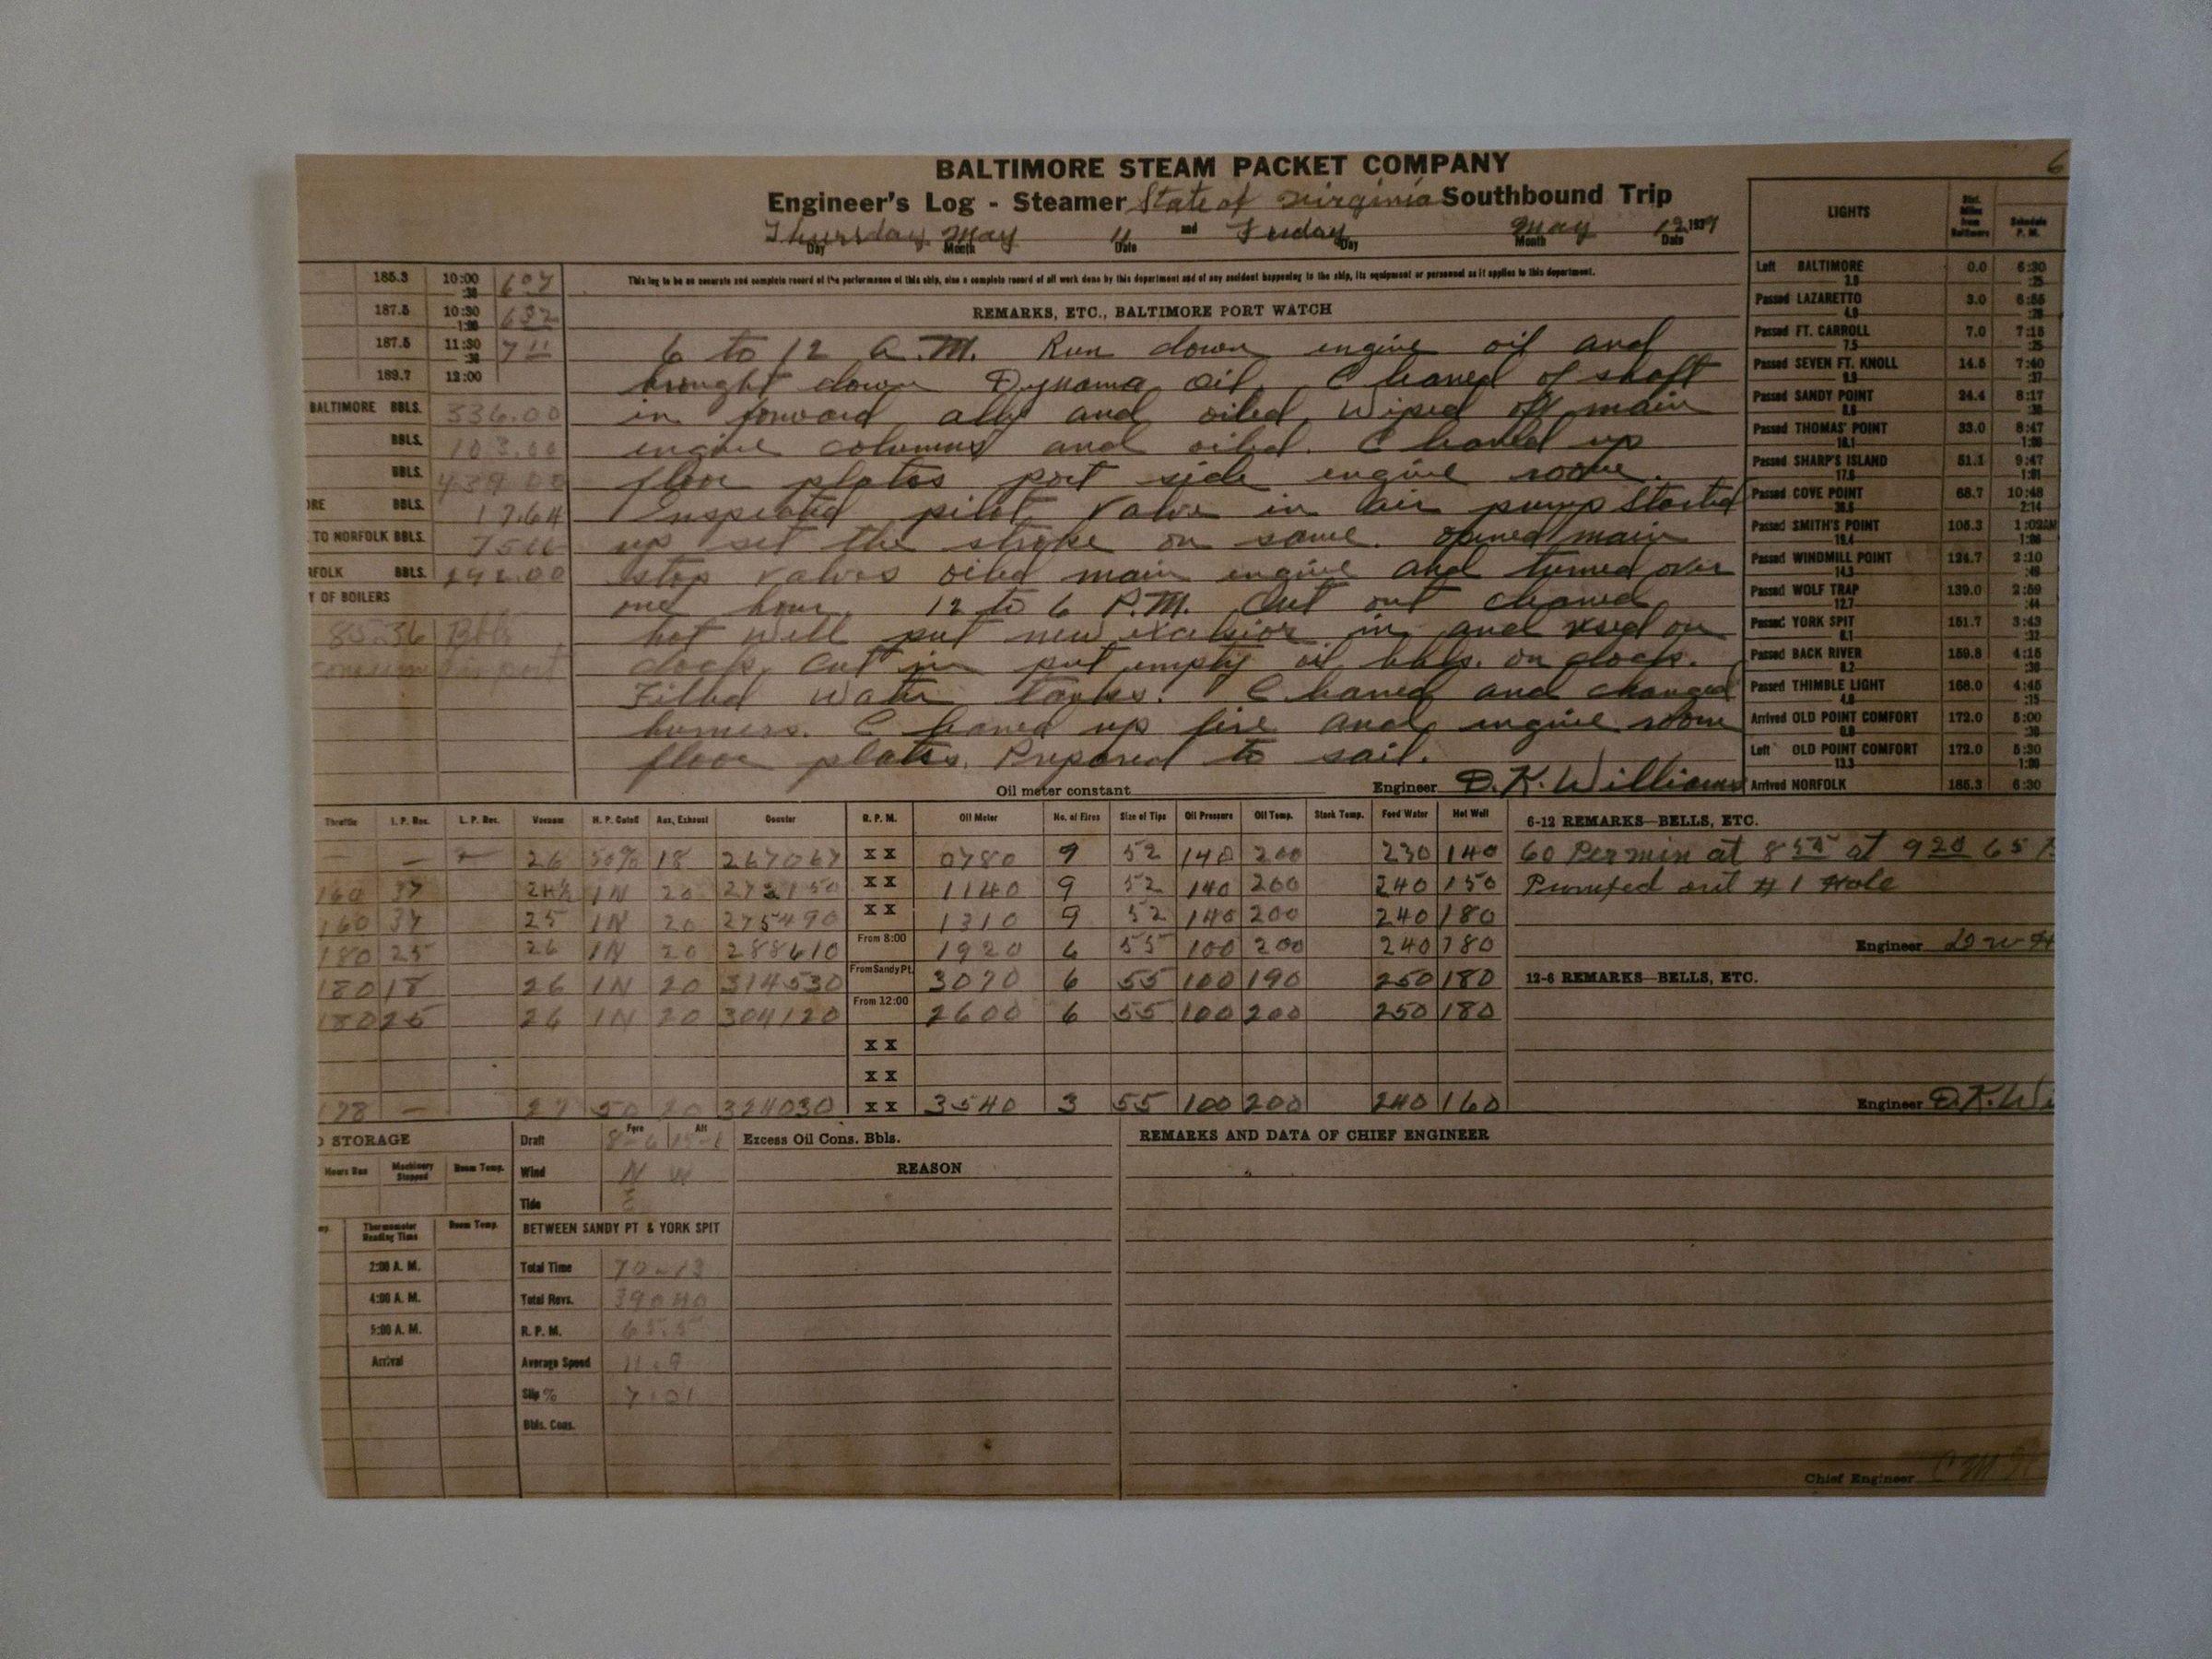 6
BALTIMORE STEAM PACKET COMPANY
Engineer's Log - Steamer State of Virginia Southbound Trip
Thursday May 11 and Friday May 12 1939
Day Month Date Day Month Date
This log to be an accurate and complete record of the performance of this ship, also a complete record of all work done by this department and of any accident happening to the ship, its equipment or personnel as it applies to this department.
REMARKS, ETC., BALTIMORE PORT WATCH
6 to 12 A.M. Run down engine oil and
brought down Dynama oil. Cleaned of shaft
in forward ally and oiled. Wiped off main
engine columns and oiled. Cleaned up
floor plates port side engine room.
Inspected pilot valve in air pump Started
up set the stroke on same. opened main
stop valves oiled main engine and turned over
one hour. 12 to 6 P.M. Cut out cleaned
hot well put new excelsior in and used on
dock. Cut in put empty oil bbls. on dock.
Filled water tanks. Cleaned and changed
burners. Cleaned up fire and engine room
floor plates. Prepared to sail.
Oil meter constant Engineer D.K. Williams
185.3 10:00 607
:30
187.5 10:30 632
1:00
187.5 11:30 711
:30
189.7 12:00
BALTIMORE BBLS. 336.00
BBLS. 103.00
BBLS. 439.00
ORE BBLS. 17.64
TO NORFOLK BBLS.
RFOLK BBLS.
Y OF BOILERS
85.36 Bbls
consumed in port
LIGHTS Stat. Miles from Baltimore Schedule P. M.
Left BALTIMORE 0.0 6:30
3.0 :25
Passed LAZARETTO 3.0 6:55
4.0 :20
Passed FT. CARROLL 7.0 7:15
7.5 :25
Passed SEVEN FT. KNOLL 14.5 7:40
9.9 :37
Passed SANDY POINT 24.4 8:17
8.6 :30
Passed THOMAS' POINT 33.0 8:47
18.1 1:00
Passed SHARP'S ISLAND 51.1 9:47
17.6 1:01
Passed COVE POINT 68.7 10:48
36.6 2:14
Passed SMITH'S POINT 105.3 1:02AM
19.4 1:08
Passed WINDMILL POINT 124.7 2:10
14.3 :49
Passed WOLF TRAP 139.0 2:59
12.7 :44
Passed YORK SPIT 151.7 3:43
8.1 :32
Passed BACK RIVER 159.8 4:15
8.2 :30
Passed THIMBLE LIGHT 168.0 4:45
4.0 :15
Arrived OLD POINT COMFORT 172.0 5:00
0.0 :30
Left OLD POINT COMFORT 172.0 5:30
13.3 1:00
Arrived NORFOLK 185.3 6:30
Throttle I. P. Rec. L. P. Rec. Vacuum H. P. Cutoff Aux. Exhaust Counter R. P. M. Oil Meter No. of Fires Size of Tips Oil Pressure Oil Temp. Stack Temp. Feed Water Hot Well
— — 26 50% 18 267067 X X 0780 9 52 140 200 230 140
160 37 24½ IN 20 272150 X X 1140 9 52 140 200 240 150
160 37 25 IN 20 275490 X X 1310 9 52 140 200 240 180
180 25 26 IN 20 288610 From 8:00 1920 6 55 100 200 240 180
180 18 26 IN 20 314530 From Sandy Pt. 3070 6 55 100 190 250 180
180 25 26 IN 20 304120 From 12:00 2600 6 55 100 200 250 180
X X
X X
178 — 27 50 20 324030 X X 3540 3 55 100 200 240 160
6-12 REMARKS—BELLS, ETC.
60 Per min at 8 55 at 9 20 65
Pumped out # 1 Hole
Engineer
12-6 REMARKS—BELLS, ETC.
Engineer D.K. Wi
STORAGE
Hours Run Machinery Stopped Room Temp.
Thermometer Reading Time Room Temp.
2:00 A. M.
4:00 A. M.
5:00 A. M.
Arrival
Fore Aft
Draft 8-6
Wind N W
Tide E
BETWEEN SANDY PT & YORK SPIT
Total Time
Total Revs. 39040
R. P. M. 65.5
Average Speed 11.9
Slip % 7.01
Bbls. Cons.
Excess Oil Cons. Bbls.
REASON
REMARKS AND DATA OF CHIEF ENGINEER
Chief Engineer